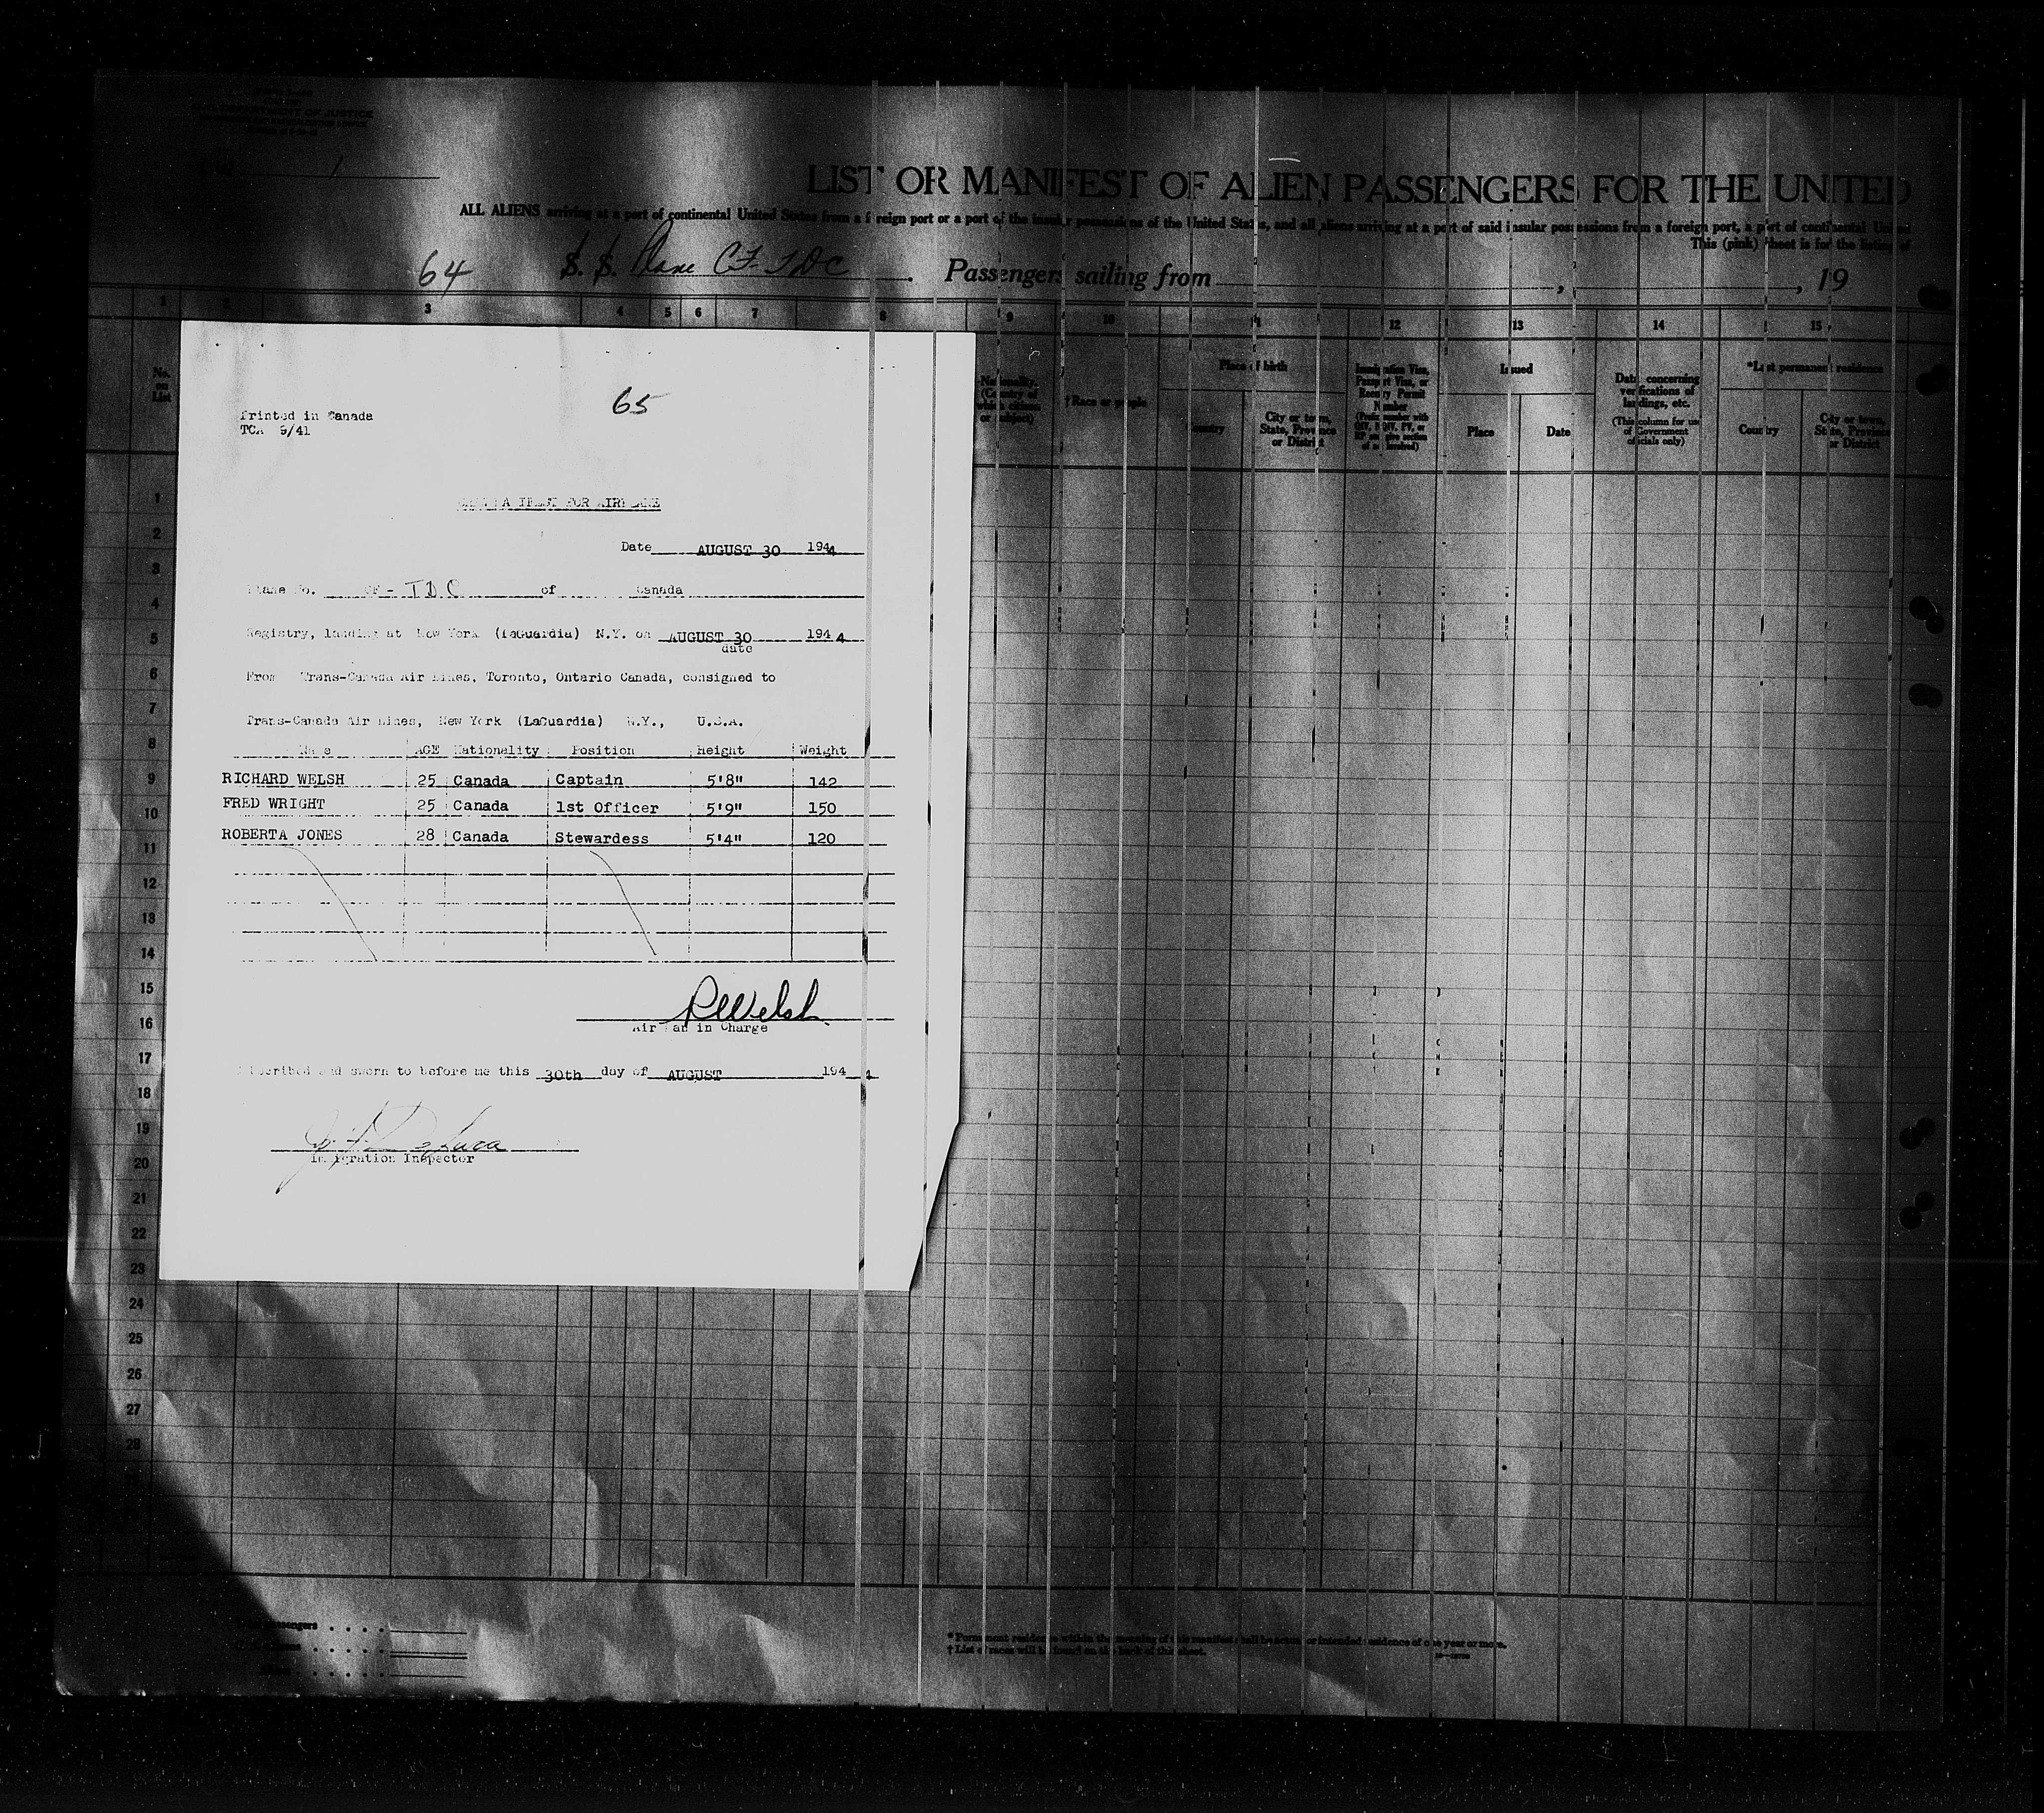 U.S. DEPARTMENT OF JUSTICE
1
LIST OR MANIFEST OF ALIEN PASSENGERS FOR THE UNITED
ALL ALIENS arriving at a port of continental United States from a foreign port or a port of the insular possessions of the United States, and all aliens arriving at a port of said insular possessions from a foreign port, a port of continental United
This (pink) sheet is for the listing of
64 S. S. Plane CF-TDC . Passengers sailing from , , 19
1 2 3 4 5 6 7 8 9 10 11 12 13 14 15
No. on List
Nationality, (Country of which citizen or subject)
†Race or people
Place of birth
Country
City or town, State, Province or District
Immigration Visa, Passport Visa, or Reentry Permit Number
Issued
Place
Date
Data concerning verifications of landings, etc.
(This column for use of Government officials only)
*Last permanent residence
Country
City or town, State, Province or District
65
Printed in Canada
TCA 9/41
FOR AIRPLANE
Date AUGUST 30 1944
Plane No. CF-TDC of Canada
Registry, landing at New York (LaGuardia) N.Y. on AUGUST 30 1944
date
From Trans-Canada Air Lines, Toronto, Ontario Canada, consigned to
Trans-Canada Air Lines, New York (LaGuardia) N.Y., U.S.A.
Name AGE Nationality Position Height Weight
RICHARD WELSH 25 Canada Captain 5'8" 142
FRED WRIGHT 25 Canada 1st Officer 5'9" 150
ROBERTA JONES 28 Canada Stewardess 5'4" 120
R Welsh
Air Man in Charge
Subscribed and sworn to before me this 30th day of AUGUST 1944
Immigration Inspector
1
2
3
4
5
6
7
8
9
10
11
12
13
14
15
16
17
18
19
20
21
22
23
24
25
26
27
28
passengers
* Permanent residence within the meaning of this manifest shall be actual or intended residence of one year or more.
† List of races will be found on the back of this sheet.